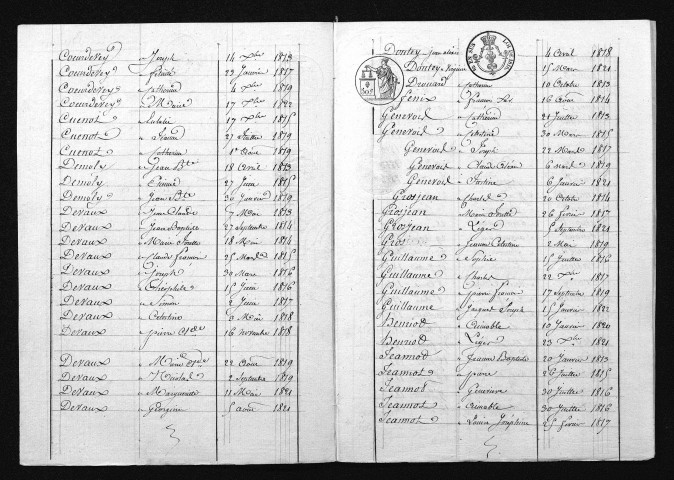 Courderey Joseph 14 Xbre 1813
Courderey 23 Janvier 1817
Courderey Catherine 4 Xbre 1819
Courderey Marie 17 Xbre 1822
Cuenot 17 Xbre 1815
Cuenot 27 Juillet 1819
Cuenot Catherine 1er Août 1819
Demoly Jean Bte 18 Avril 1813
Demoly Etienne 27 Juin 1815
Demoly Jean Bte 30 Janvier 1819
Devaux Jean Claude 7 Mai 1813
Devaux Jean Baptiste 27 Septembre 1814
Devaux Marie Josette 18 Mai 1814
Devaux Claude François 25 Mars 1815
Devaux Joseph 29 Mars 1816
Devaux Théophile 15 Juin 1816
Devaux Simon 2 Juin 1817
Devaux Célestine Mai 1818
Devaux pierre 16 Novembre 1818
Devaux Marie 22 Août 1819
Devaux Nicolas 2 Septembre 1819
Devaux Marguerite 11 Mai 1821
Devaux Georgine 5 août 1821
Dontry 4 Avril 1818
Dontry 15 Mars 1821
Drouard Catherine 10 Octobre 1813
Fenix 16 Août 1814
Genevoid Catherine 21 Juillet 1813
Genevoid 30 Mars 1815
Genevoid Joseph 22 Mars 1817
Genevoid Claude 6 1819
Genevoid Justine 6 Janvier 1821
Grosjean Charles 20 Octobre 1814
Grosjean Marie Josette 26 Février 1817
Grosjean Léger 5 Septembre 1821
Gros Jeanne Célestine 2 Mai 1819
Guillaume Sophie 15 Juillet 1816
Guillaume Charles 22 Xbre 1817
Guillaume pierre François 17 Septembre 1819
Guillaume Jacques Joseph 15 Janvier 1822
Henriod Aimable 10 Janvier 1820
Henriod Léger 23 Xbre 1821
Jeannot Jeanne Baptiste 20 Janvier 1813
Jeannot pierre 26 Juillet 1815
Jeannot Genevieve 30 Juillet 1816
Jeannot Aimable 30 Juillet 1816
Jeannot Louise Joséphine 25 février 1817